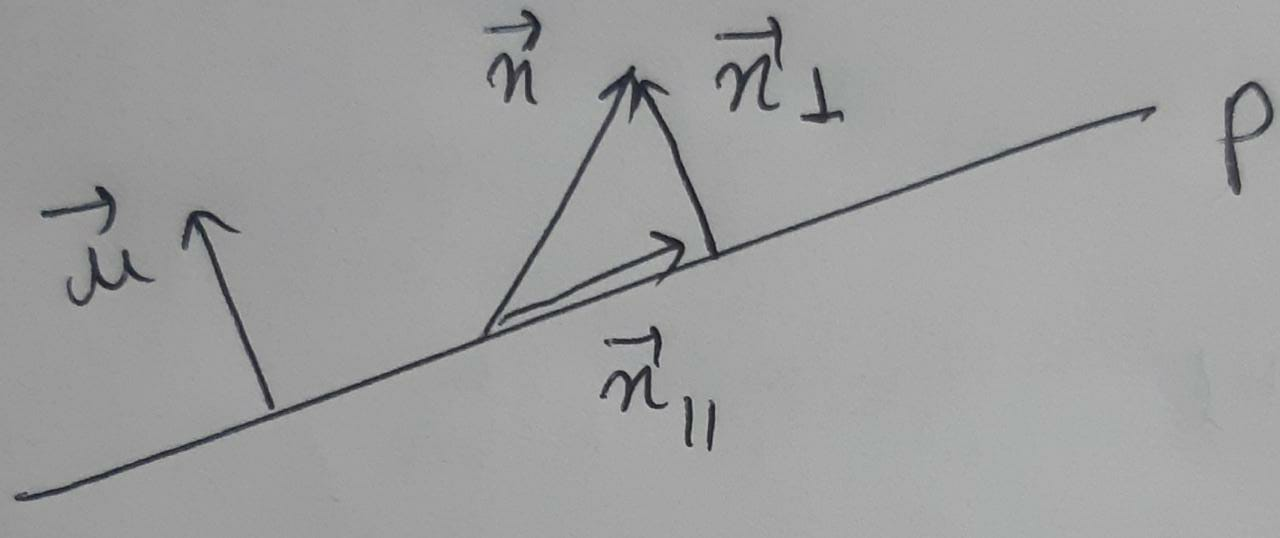 n⃗ n⃗⊥
P
u⃗
n⃗∥